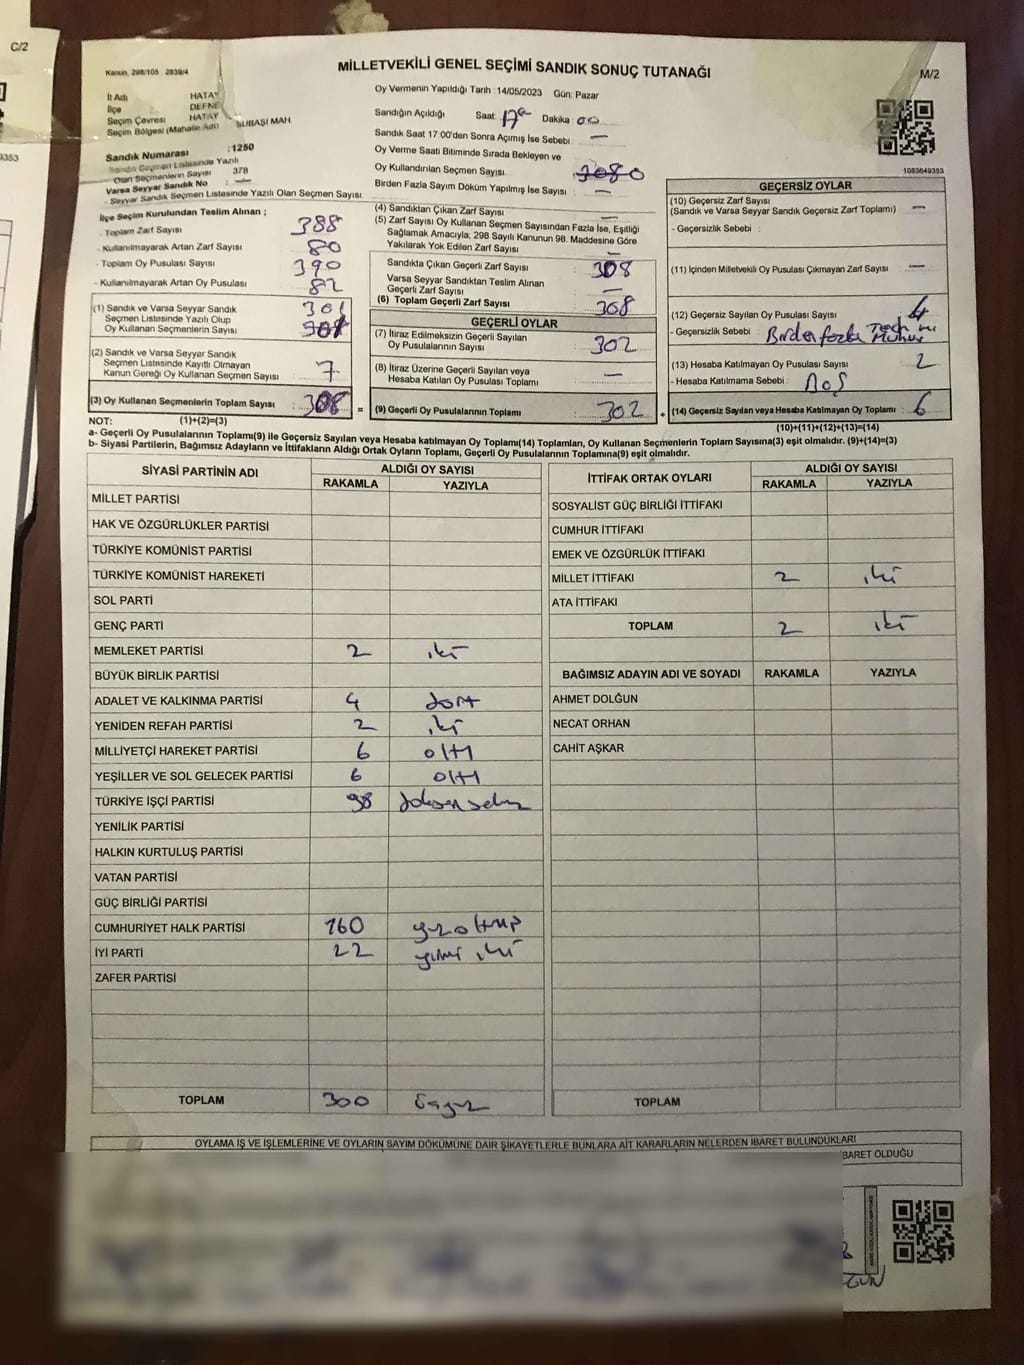 C/2
9353
Kanun, 298/105 2839/4
MİLLETVEKİLİ GENEL SEÇİMİ SANDIK SONUÇ TUTANAĞI
M/2
İl Adı HATAY
İlçe DEFNE
Seçim Çevresi HATAY
Seçim Bölgesi (Mahalle Adı) SUBAŞI MAH.
Sandık Numarası :1250
Sandık Seçmen Listesinde Yazılı
Olan Seçmenlerin Sayısı 378
Varsa Seyyar Sandık No : —
- Seyyar Sandık Seçmen Listesinde Yazılı Olan Seçmen Sayısı:
Oy Vermenin Yapıldığı Tarih :14/05/2023 Gün: Pazar
Sandığın Açıldığı Saat: 17 Dakika: 00
Sandık Saat 17:00'den Sonra Açımış İse Sebebi : —
Oy Verme Saati Bitiminde Sırada Bekleyen ve
Oy Kullandırılan Seçmen Sayısı :
Birden Fazla Sayım Döküm Yapılmış İse Sayısı : —
1083649353
İlçe Seçim Kurulundan Teslim Alınan ;
- Toplam Zarf Sayısı : 388
- Kullanılmayarak Artan Zarf Sayısı : 80
- Toplam Oy Pusulası Sayısı : 390
- Kullanılmayarak Artan Oy Pusulası : 82
(1) Sandık ve Varsa Seyyar Sandık
Seçmen Listesinde Yazılı Olup
Oy Kullanan Seçmenlerin Sayısı : 301
(2) Sandık ve Varsa Seyyar Sandık
Seçmen Listesinde Kayıtlı Olmayan
Kanun Gereği Oy Kullanan Seçmen Sayısı : 7
(3) Oy Kullanan Seçmenlerin Toplam Sayısı : 308
(1)+(2)=(3)
(4) Sandıktan Çıkan Zarf Sayısı : —
(5) Zarf Sayısı Oy Kullanan Seçmen Sayısından Fazla İse, Eşitliği
Sağlamak Amacıyla; 298 Sayılı Kanunun 98. Maddesine Göre
Yakılarak Yok Edilen Zarf Sayısı : —
Sandıkta Çıkan Geçerli Zarf Sayısı : 308
Varsa Seyyar Sandıktan Teslim Alınan
Geçerli Zarf Sayısı : —
(6) Toplam Geçerli Zarf Sayısı : 308
GEÇERLİ OYLAR
(7) İtiraz Edilmeksizin Geçerli Sayılan
Oy Pusulalarının Sayısı : 302
(8) İtiraz Üzerine Geçerli Sayılan veya
Hesaba Katılan Oy Pusulası Toplamı : —
= (9) Geçerli Oy Pusulalarının Toplamı : 302
GEÇERSİZ OYLAR
(10) Geçersiz Zarf Sayısı
(Sandık ve Varsa Seyyar Sandık Geçersiz Zarf Toplamı) : —
- Geçersizlik Sebebi :
(11) İçinden Milletvekili Oy Pusulası Çıkmayan Zarf Sayısı : —
(12) Geçersiz Sayılan Oy Pusulası Sayısı : 4
- Geçersizlik Sebebi : Birden fazla
(13) Hesaba Katılmayan Oy Pusulası Sayısı : 2
- Hesaba Katılmama Sebebi : Boş
+ (14) Geçersiz Sayılan veya Hesaba Katılmayan Oy Toplamı : 6
(10)+(11)+(12)+(13)=(14)
NOT:
a- Geçerli Oy Pusulalarının Toplamı(9) ile Geçersiz Sayılan veya Hesaba katılmayan Oy Toplamı(14) Toplamları, Oy Kullanan Seçmenlerin Toplam Sayısına(3) eşit olmalıdır. (9)+(14)=(3)
b- Siyasi Partilerin, Bağımsız Adayların ve İttifakların Aldığı Ortak Oyların Toplamı, Geçerli Oy Pusulalarının Toplamına(9) eşit olmalıdır.
SİYASİ PARTİNİN ADI ALDIĞI OY SAYISI
RAKAMLA YAZIYLA
MİLLET PARTİSİ
HAK VE ÖZGÜRLÜKLER PARTİSİ
TÜRKİYE KOMÜNİST PARTİSİ
TÜRKİYE KOMÜNİST HAREKETİ
SOL PARTİ
GENÇ PARTİ
MEMLEKET PARTİSİ 2 iki
BÜYÜK BİRLİK PARTİSİ
ADALET VE KALKINMA PARTİSİ 4 dört
YENİDEN REFAH PARTİSİ 2 iki
MİLLİYETÇİ HAREKET PARTİSİ 6 altı
YEŞİLLER VE SOL GELECEK PARTİSİ 6 altı
TÜRKİYE İŞÇİ PARTİSİ 98 doksan sekiz
YENİLİK PARTİSİ
HALKIN KURTULUŞ PARTİSİ
VATAN PARTİSİ
GÜÇ BİRLİĞİ PARTİSİ
CUMHURİYET HALK PARTİSİ 160 yüzaltmış
İYİ PARTİ 22 yirmi iki
ZAFER PARTİSİ
TOPLAM 300 üçyüz
İTTİFAK ORTAK OYLARI ALDIĞI OY SAYISI
RAKAMLA YAZIYLA
SOSYALİST GÜÇ BİRLİĞİ İTTİFAKI
CUMHUR İTTİFAKI
EMEK VE ÖZGÜRLÜK İTTİFAKI
MİLLET İTTİFAKI 2 iki
ATA İTTİFAKI
TOPLAM 2 iki
BAĞIMSIZ ADAYIN ADI VE SOYADI RAKAMLA YAZIYLA
AHMET DOLĞUN
NECAT ORHAN
CAHİT AŞKAR
TOPLAM
OYLAMA İŞ VE İŞLEMLERİNE VE OYLARIN SAYIM DÖKÜMÜNE DAİR ŞİKAYETLERLE BUNLARA AİT KARARLARIN NELERDEN İBARET BULUNDUKLARI
BARET OLDUĞU